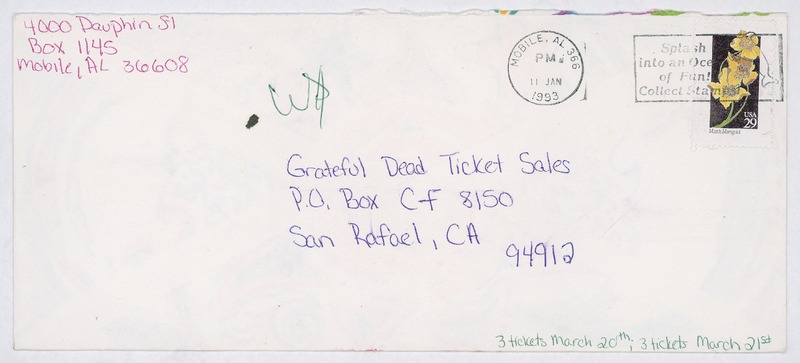 4000 Dauphin St
Box 1145
Mobile, AL 36608
MOBILE, AL 366
PM
11 JAN
1993
Splash
into an Oce
of Fun!
Collect Stamps
USA
29
Grateful Dead Ticket Sales
P.O. Box C-F 8150
San Rafael, CA
94912
3 tickets March 20th; 3 tickets March 21st